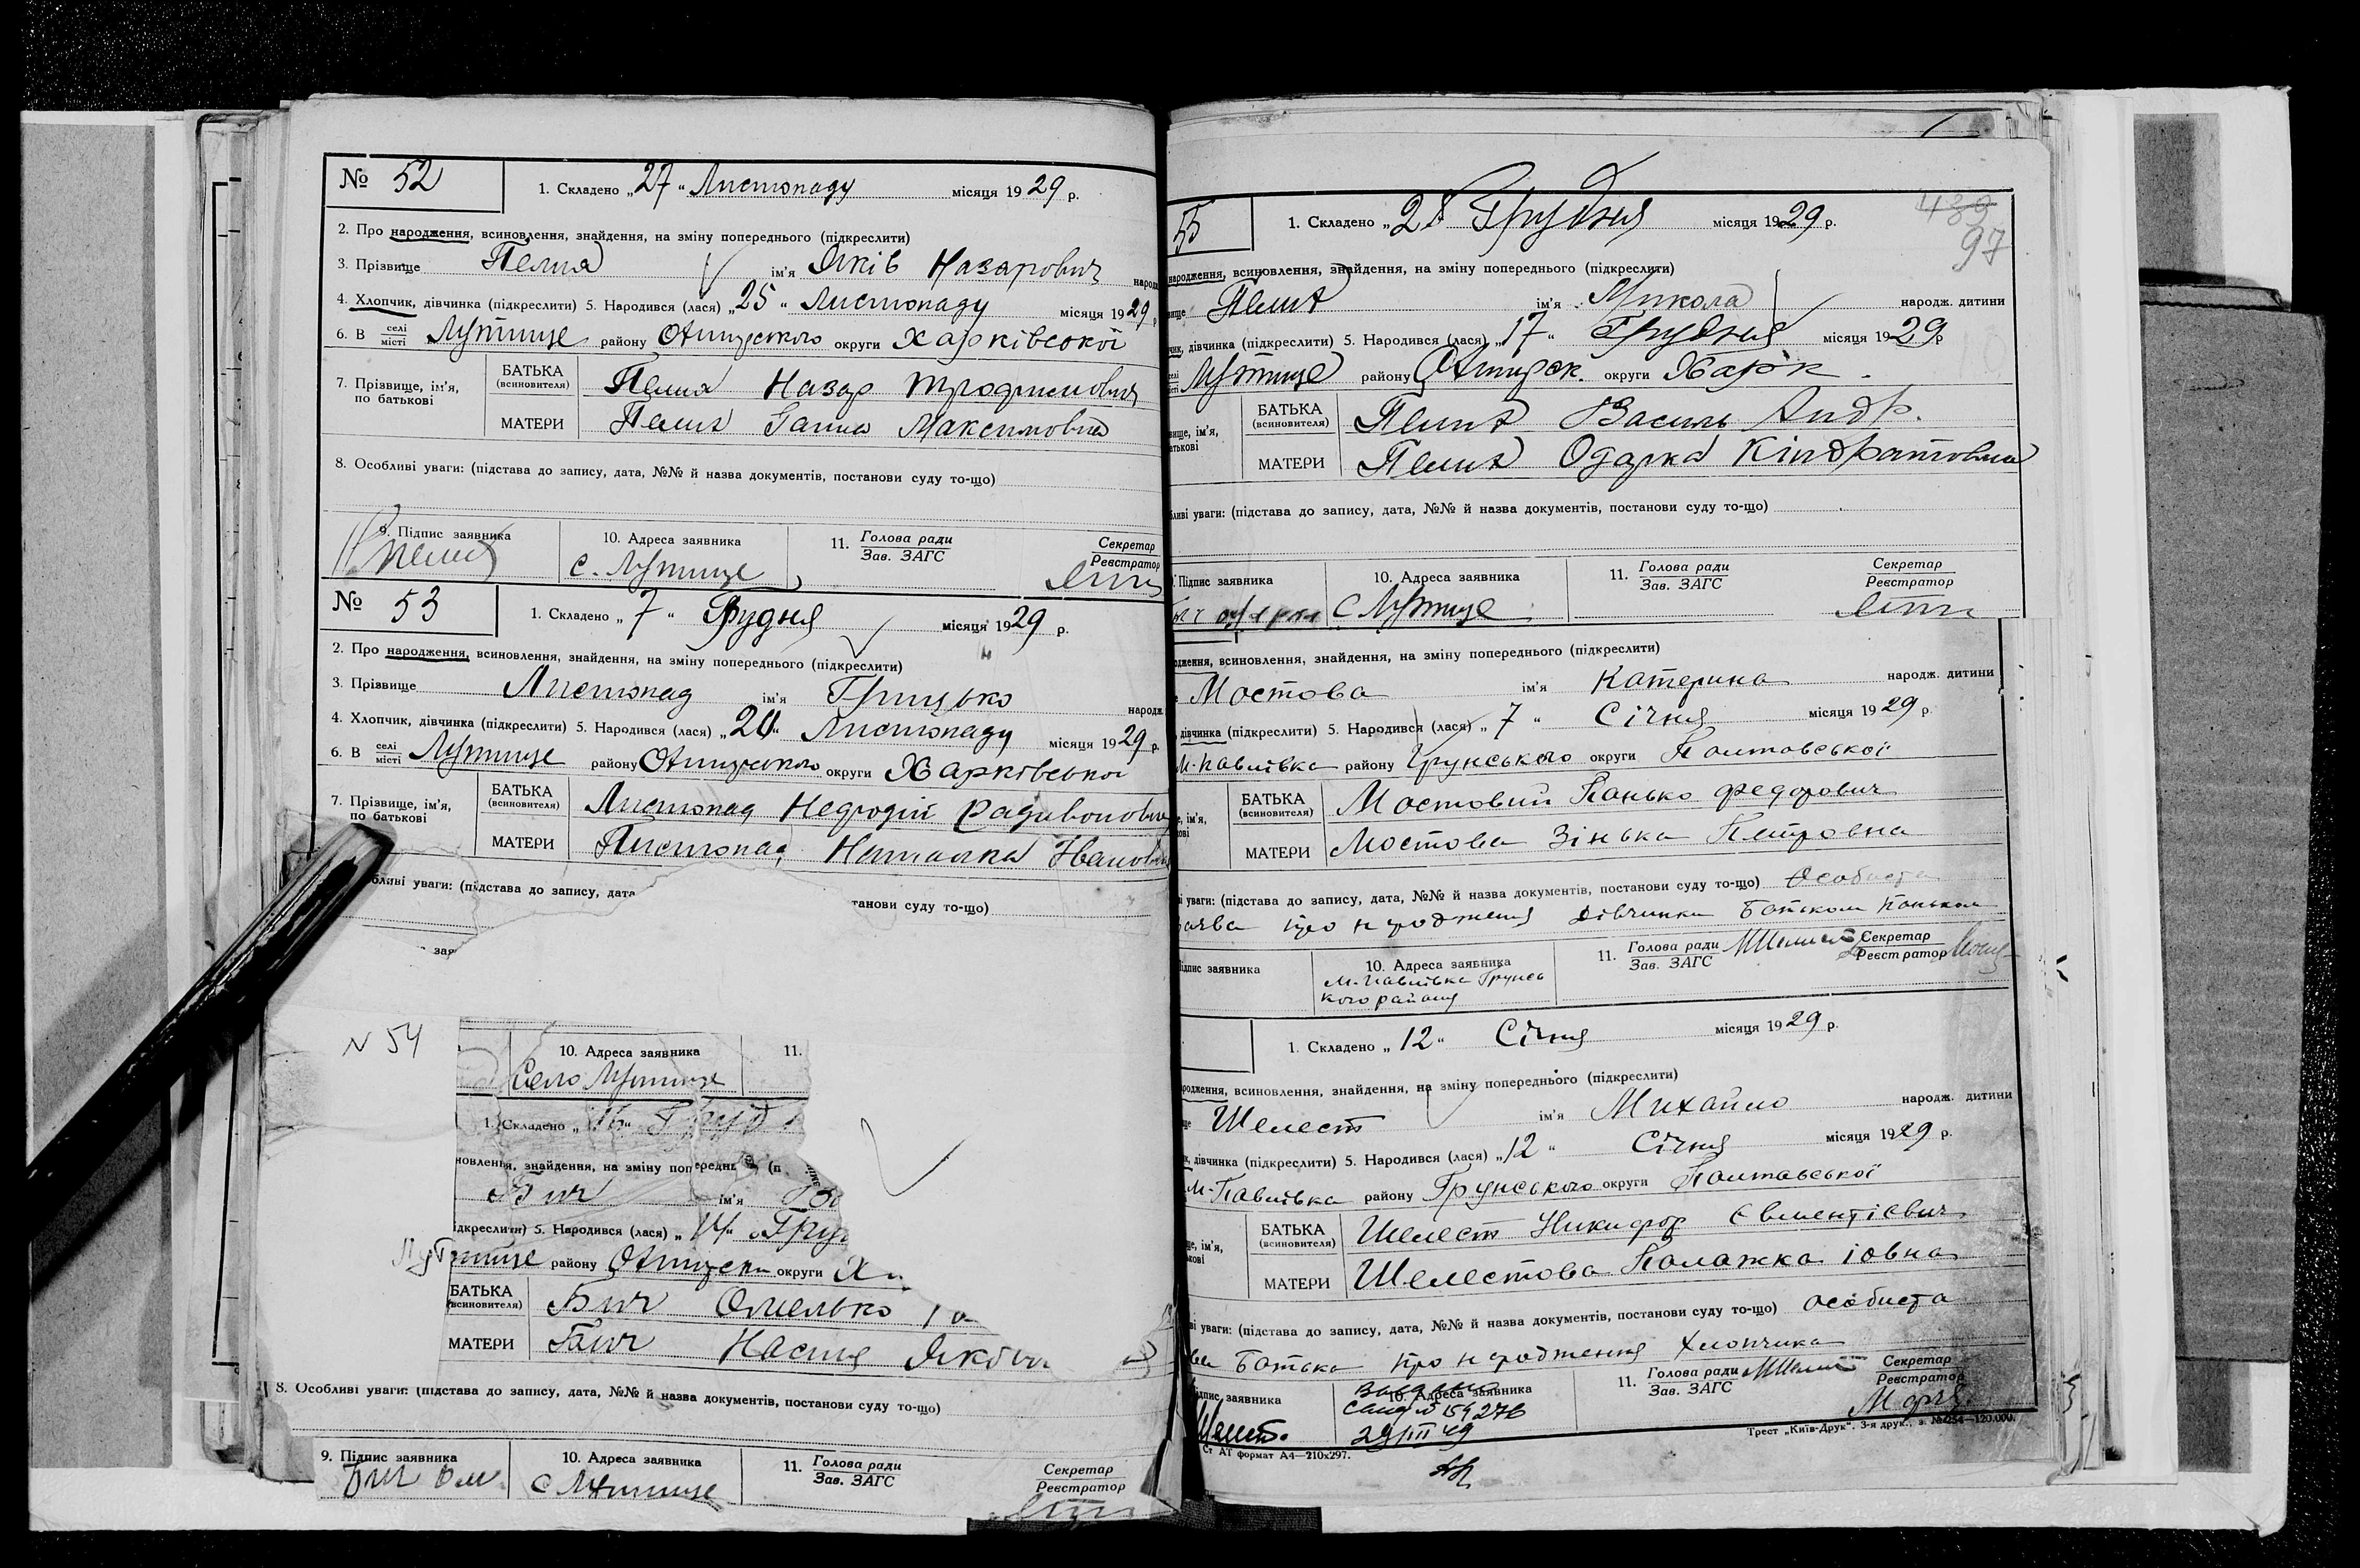 № 52
1. Складено „27“ Листопаду місяця 1929 р.
2. Про народження, всиновлення, знайдення, на зміну попереднього (підкреслити)
3. Прізвище Пелих ім'я Яків Назарович народ
4. Хлопчик, дівчинка (підкреслити) 5. Народився (лася) „25“ Листопаду місяця 1929 р
6. В селі місті Лутище району Охтирського округи Харківської
7. Прізвище, ім'я, по батькові
БАТЬКА (всиновителя) Пелих Назар Трофимович
МАТЕРИ Пелих Ганна Максимовна
8. Особливі уваги: (підстава до запису, дата, №№ й назва документів, постанови суду то-що)
9. Підпис заявника 10. Адреса заявника 11. Голова ради Зав. ЗАГС Секретар Реєстратор
с. Лутище
№ 53
1. Складено „7“ Грудня місяця 1929 р.
2. Про народження, всиновлення, знайдення, на зміну попереднього (підкреслити)
3. Прізвище Листопад ім'я Грицько народж
4. Хлопчик, дівчинка (підкреслити) 5. Народився (лася) „20“ Листопаду місяця 1929 р.
6. В селі місті Лутище району Охтирського округи Харківської
7. Прізвище, ім'я, по батькові
БАТЬКА (всиновителя) Листопад Радивонович
МАТЕРИ Листопад Наталка Іванов
бливі уваги: (підстава до запису, дата
танови суду то-що)
зая
N 54
10. Адреса заявника 11.
Село Лутище
1. Складено „16“ Груд
новлення, знайдення, на зміну попередн (п
Бич ім'я
ідкреслити) 5. Народився (лася) „14“ Груд
Лутище району Охтирськ округи Х
БАТЬКА (всиновителя) Бич Омелько
МАТЕРИ Бич Настя Яковл
8. Особливі уваги: (підстава до запису, дата, №№ й назва документів, постанови суду то-що)
9. Підпис заявника 10. Адреса заявника 11. Голова ради Зав. ЗАГС Секретар Реєстратор
Бич Ом. с Лутище
439
97
55
1. Складено „28 Грудня місяця 1929 р.
народження, всиновлення, знайдення, на зміну попереднього (підкреслити)
вище Пелих ім'я Микола народж. дитини
чик, дівчинка (підкреслити) 5. Народився (лася) „17“ Грудня місяця 1929 р
селі місті Лутище району Охтирськ. округи Харьк
вище, ім'я, атькові
БАТЬКА (всиновителя) Пелих Василь Андр.
МАТЕРИ Пелих Одарка Кіндратовна
бливі уваги: (підстава до запису, дата, №№ й назва документів, постанови суду то-що)
Підпис заявника 10. Адреса заявника 11. Голова ради Зав. ЗАГС Секретар Реєстратор
С Лутище
одження, всиновлення, знайдення, на зміну попереднього (підкреслити)
Мостова ім'я Катерина народж. дитини
дівчинка (підкреслити) 5. Народився (лася) „7“ Січня місяця 1929 р.
М-Павлівка району Грунського округи Полтавської
е, ім'я, кові
БАТЬКА (всиновителя) Мостовий Панько Федорович
МАТЕРИ Мостова Зінька Петровна
і уваги: (підстава до запису, дата, №№ й назва документів, постанови суду то-що) Особиста
заява про народження дівчинки Батьком Паньком
Підпис заявника 10. Адреса заявника 11. Голова ради Зав. ЗАГС Секретар Реєстратор
М-Павлівка Грунсь
кого району
1. Складено „12“ Січня місяця 1929 р.
родження, всиновлення, знайдення, на зміну попереднього (підкреслити)
ще Шелест ім'я Михайло народж. дитини
к, дівчинка (підкреслити) 5. Народився (лася) „12“ Січня місяця 1929 р.
М-Павлівка району Грунського округи Полтавської
ще, ім'я, ькові
БАТЬКА (всиновителя) Шелест Никифор Євментієвич
МАТЕРИ Шелестова Палажка Іовна
ві уваги: (підстава до запису, дата, №№ й назва документів, постанови суду то-що) особиста
ва Батька про народження хлопчика
дпис заявника 10. Адреса заявника 11. Голова ради Зав. ЗАГС Секретар Реєстратор
29/III 49
Ст АТ формат А4—210х297.
Трест „Київ-Друк“. 3-я друк., з. № 254—120.000.